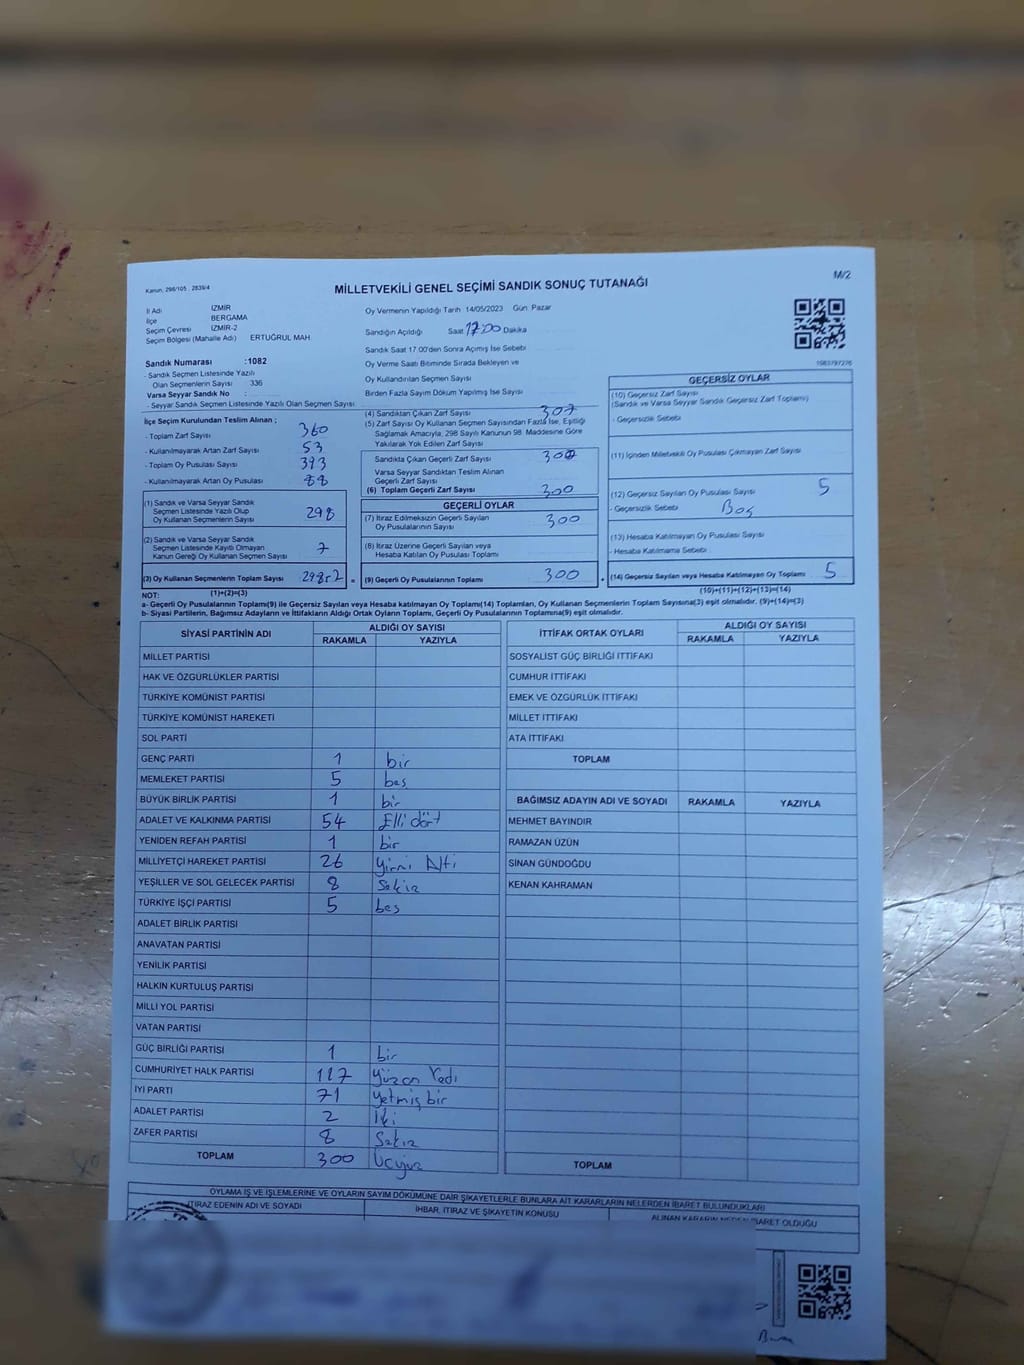 Kanun, 298/105 , 2839/4
M/2
MİLLETVEKİLİ GENEL SEÇİMİ SANDIK SONUÇ TUTANAĞI
İl Adı İZMİR
İlçe BERGAMA
Seçim Çevresi İZMİR-2
Seçim Bölgesi (Mahalle Adı) ERTUĞRUL MAH.
Oy Vermenin Yapıldığı Tarih 14/05/2023 Gün: Pazar
Sandığın Açıldığı Saat 17:00 Dakika
Sandık Saat 17.00'den Sonra Açımış İse Sebebi
Oy Verme Saati Bitiminde Sırada Bekleyen ve
Oy Kullandırılan Seçmen Sayısı
Birden Fazla Sayım Döküm Yapılmış İse Sayısı
Sandık Numarası :1082
- Sandık Seçmen Listesinde Yazılı
Olan Seçmenlerin Sayısı : 336
Varsa Seyyar Sandık No :
- Seyyar Sandık Seçmen Listesinde Yazılı Olan Seçmen Sayısı:
İlçe Seçim Kurulundan Teslim Alınan ;
- Toplam Zarf Sayısı 360
- Kullanılmayarak Artan Zarf Sayısı 53
- Toplam Oy Pusulası Sayısı 393
- Kullanılmayarak Artan Oy Pusulası 88
(1) Sandık ve Varsa Seyyar Sandık
Seçmen Listesinde Yazılı Olup
Oy Kullanan Seçmenlerin Sayısı 298
(2) Sandık ve Varsa Seyyar Sandık
Seçmen Listesinde Kayıtlı Olmayan
Kanun Gereği Oy Kullanan Seçmen Sayısı 7
(3) Oy Kullanan Seçmenlerin Toplam Sayısı =
(1)+(2)=(3)
(4) Sandıktan Çıkan Zarf Sayısı 307
(5) Zarf Sayısı Oy Kullanan Seçmen Sayısından Fazla İse, Eşitliği
Sağlamak Amacıyla, 298 Sayılı Kanunun 98. Maddesine Göre
Yakılarak Yok Edilen Zarf Sayısı
Sandıkta Çıkan Geçerli Zarf Sayısı
Varsa Seyyar Sandıktan Teslim Alınan
Geçerli Zarf Sayısı
(6) Toplam Geçerli Zarf Sayısı 300
GEÇERLİ OYLAR
(7) İtiraz Edilmeksizin Geçerli Sayılan
Oy Pusulalarının Sayısı 300
(8) İtiraz Üzerine Geçerli Sayılan veya
Hesaba Katılan Oy Pusulası Toplamı
(9) Geçerli Oy Pusulalarının Toplamı 300 +
1083797276
GEÇERSİZ OYLAR
(10) Geçersiz Zarf Sayısı
(Sandık ve Varsa Seyyar Sandık Geçersiz Zarf Toplamı)
- Geçersizlik Sebebi
(11) İçinden Milletvekili Oy Pusulası Çıkmayan Zarf Sayısı
(12) Geçersiz Sayılan Oy Pusulası Sayısı 5
- Geçersizlik Sebebi Boş
(13) Hesaba Katılmayan Oy Pusulası Sayısı
- Hesaba Katılmama Sebebi
(14) Geçersiz Sayılan veya Hesaba Katılmayan Oy Toplamı 5
(10)+(11)+(12)+(13)=(14)
NOT:
a- Geçerli Oy Pusulalarının Toplamı(9) ile Geçersiz Sayılan veya Hesaba katılmayan Oy Toplamı(14) Toplamları, Oy Kullanan Seçmenlerin Toplam Sayısına(3) eşit olmalıdır. (9)+(14)=(3)
b- Siyasi Partilerin, Bağımsız Adayların ve İttifakların Aldığı Ortak Oyların Toplamı, Geçerli Oy Pusulalarının Toplamına(9) eşit olmalıdır.
SİYASİ PARTİNİN ADI ALDIĞI OY SAYISI
RAKAMLA YAZIYLA
MİLLET PARTİSİ
HAK VE ÖZGÜRLÜKLER PARTİSİ
TÜRKİYE KOMÜNİST PARTİSİ
TÜRKİYE KOMÜNİST HAREKETİ
SOL PARTİ
GENÇ PARTİ 1 bir
MEMLEKET PARTİSİ 5 beş
BÜYÜK BİRLİK PARTİSİ 1 bir
ADALET VE KALKINMA PARTİSİ 54 Elli dört
YENİDEN REFAH PARTİSİ 1 bir
MİLLİYETÇİ HAREKET PARTİSİ 26 Yirmi Altı
YEŞİLLER VE SOL GELECEK PARTİSİ 8 Sekiz
TÜRKİYE İŞÇİ PARTİSİ 5 beş
ADALET BİRLİK PARTİSİ
ANAVATAN PARTİSİ
YENİLİK PARTİSİ
HALKIN KURTULUŞ PARTİSİ
MİLLİ YOL PARTİSİ
VATAN PARTİSİ
GÜÇ BİRLİĞİ PARTİSİ 1 bir
CUMHURİYET HALK PARTİSİ 117 Yüzon Yedi
İYİ PARTİ 71 Yetmiş bir
ADALET PARTİSİ 2 İki
ZAFER PARTİSİ 8 Sekiz
TOPLAM 300 Üçyüz
İTTİFAK ORTAK OYLARI ALDIĞI OY SAYISI
RAKAMLA YAZIYLA
SOSYALİST GÜÇ BİRLİĞİ İTTİFAKI
CUMHUR İTTİFAKI
EMEK VE ÖZGÜRLÜK İTTİFAKI
MİLLET İTTİFAKI
ATA İTTİFAKI
TOPLAM
BAĞIMSIZ ADAYIN ADI VE SOYADI RAKAMLA YAZIYLA
MEHMET BAYINDIR
RAMAZAN ÜZÜN
SİNAN GÜNDOĞDU
KENAN KAHRAMAN
TOPLAM
OYLAMA İŞ VE İŞLEMLERİNE VE OYLARIN SAYIM DÖKÜMÜNE DAİR ŞİKAYETLERLE BUNLARA AİT KARARLARIN NELERDEN İBARET BULUNDUKLARI
İTİRAZ EDENİN ADI VE SOYADI İHBAR, İTİRAZ VE ŞİKAYETİN KONUSU ALINAN KARARIN NEDEN İBARET OLDUĞU